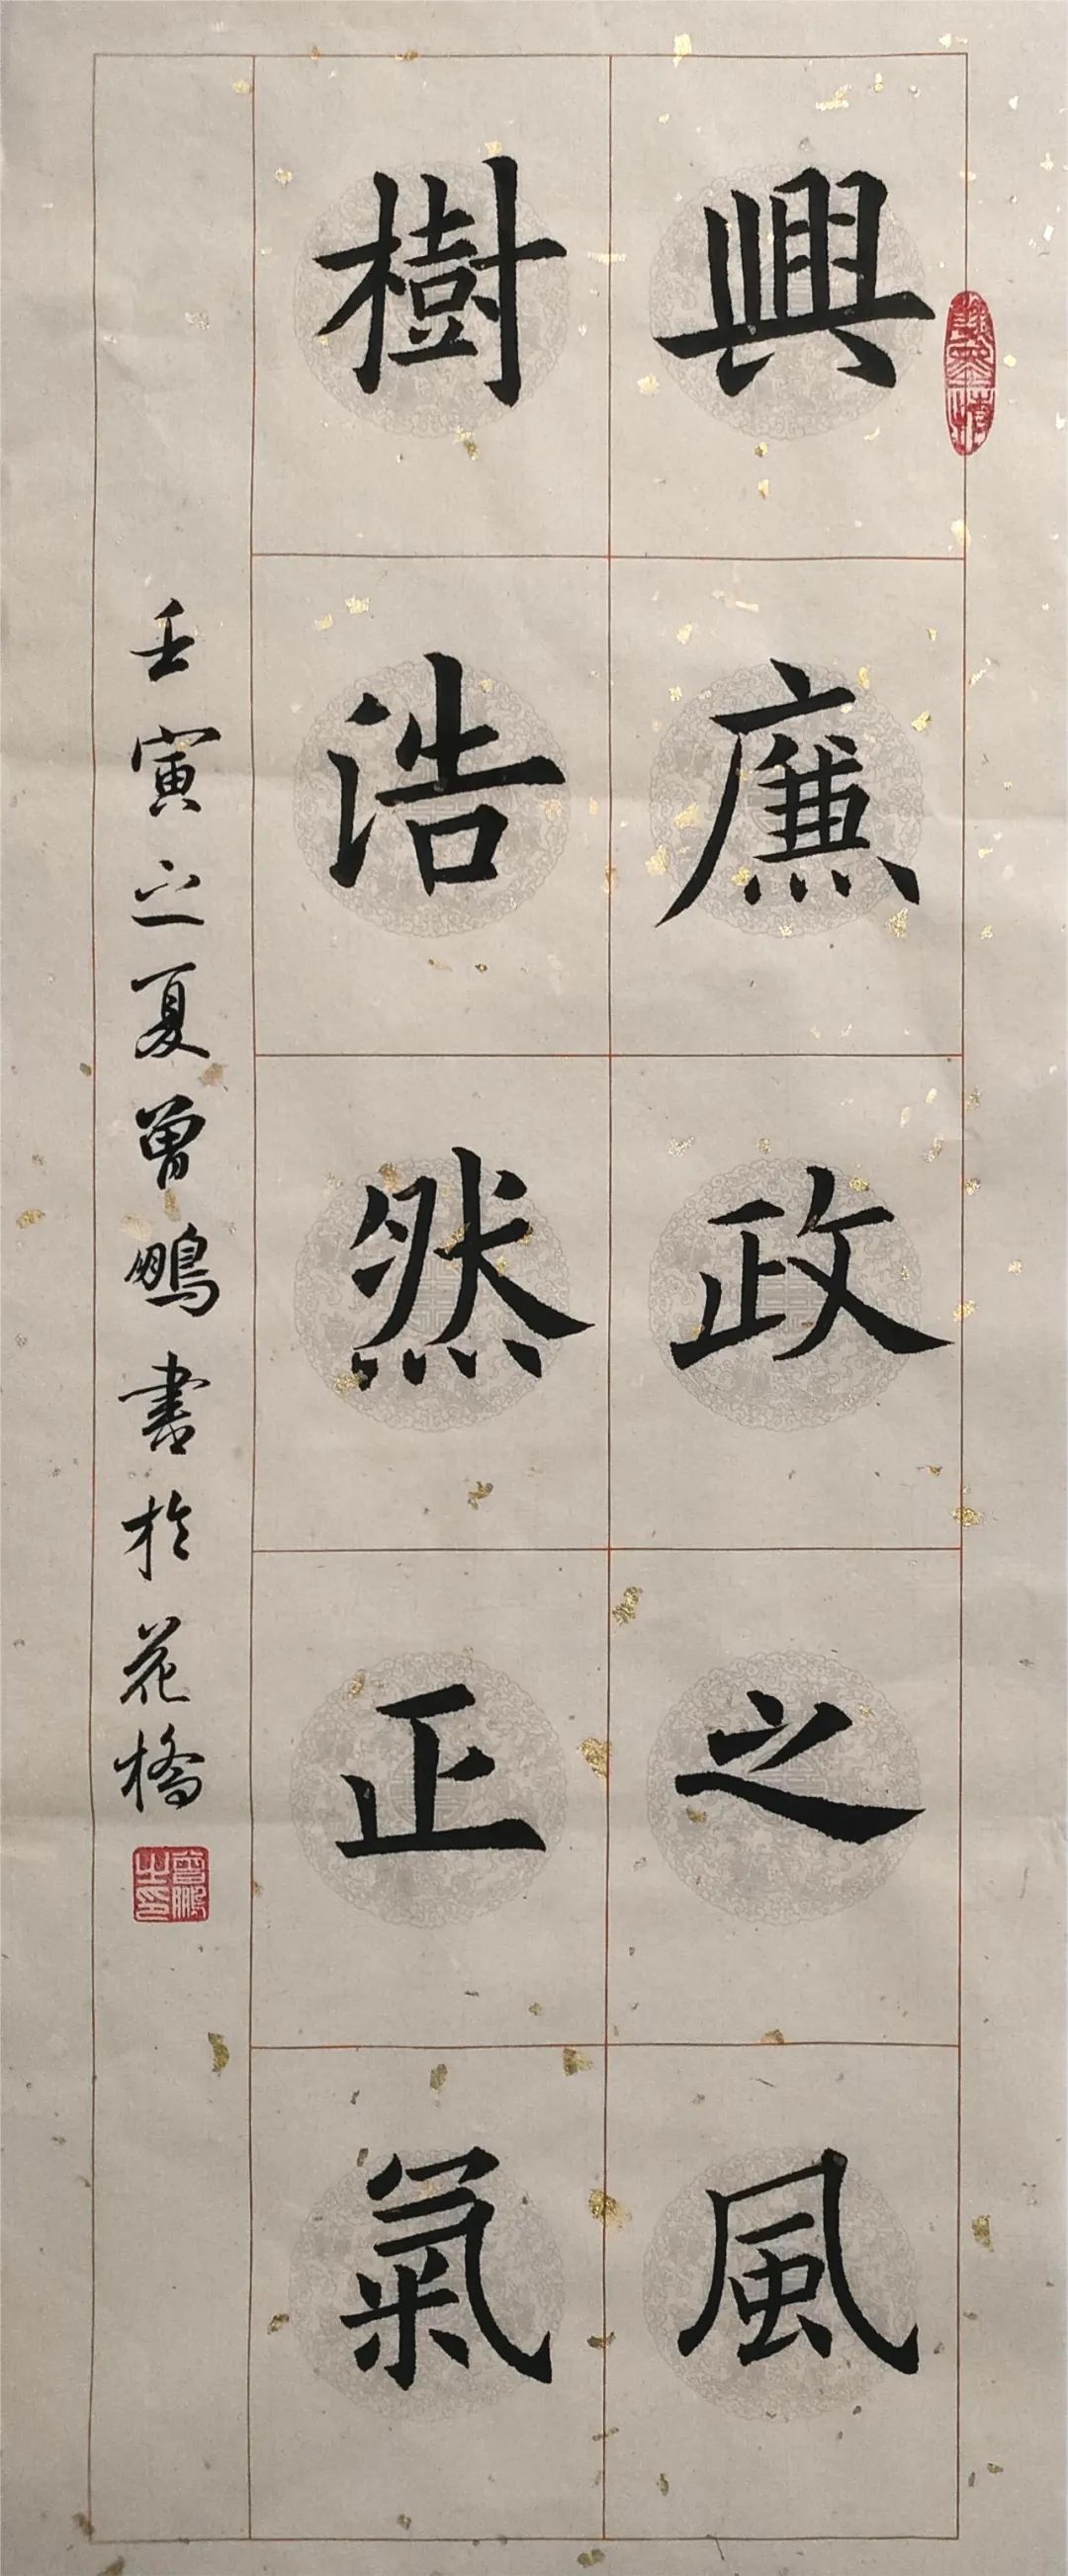 興廉政之風
樹浩然正氣
壬寅之夏曾鵬書於花橋
曾鵬之印